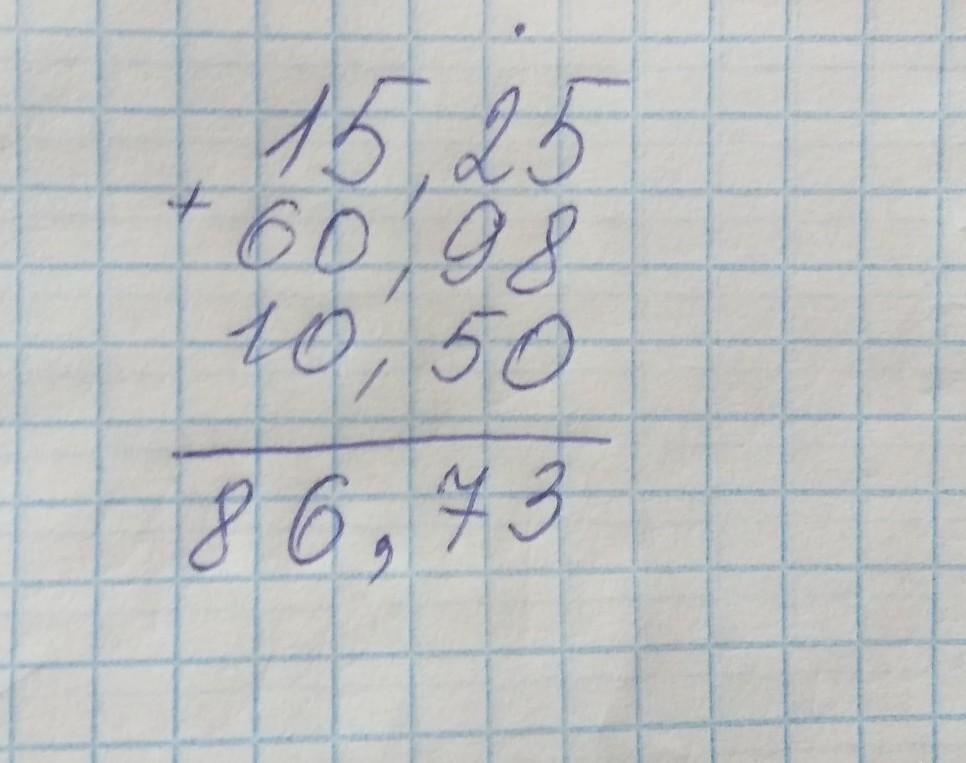 15,25
+
60,98
10,50
86,73